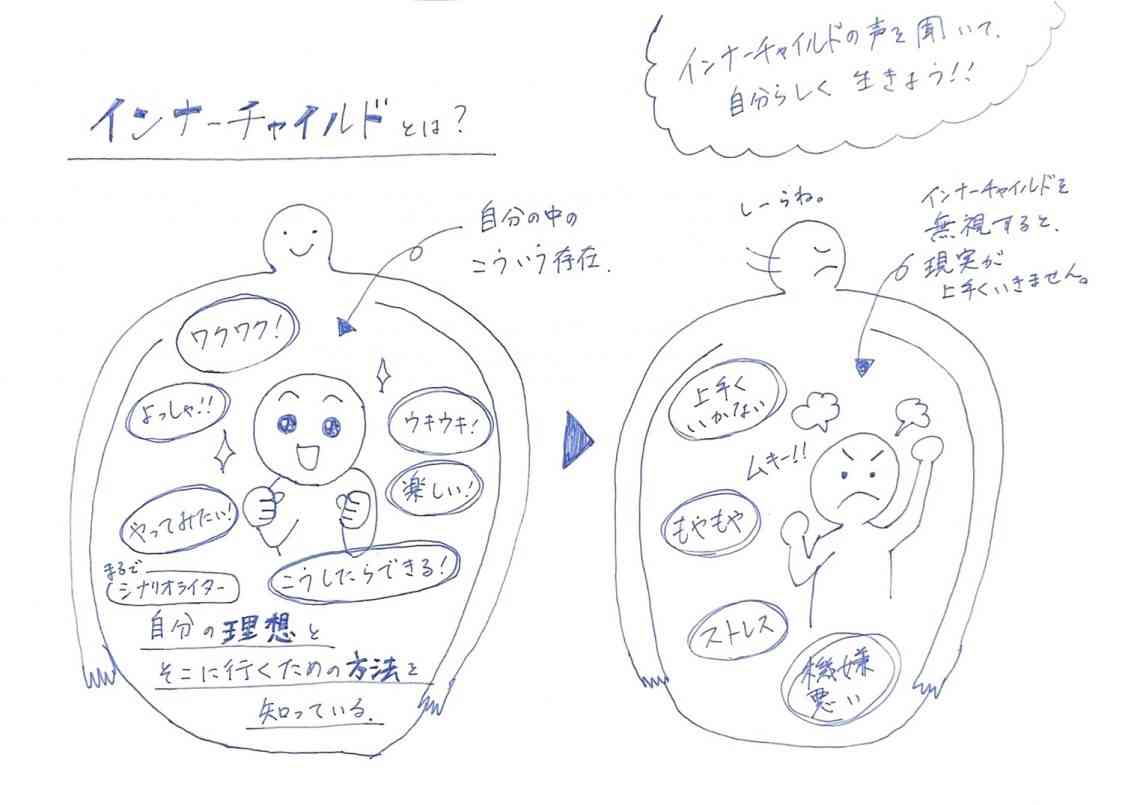 インナーチャイルドとは?
インナーチャイルドの声を聞いて、
自分らしく 生きよう!!
自分の中の
こういう存在.
ワクワク!
よっしゃ!!
ウキウキ!
楽しい!
やってみたい!
こうしたらできる!
まるで
シナリオライター
自分の理想と
そこに行くための方法を
知っている.
しーらね。
インナーチャイルドを
無視すると、
現実が
上手くいきません。
上手く
いかない
ムキー!!
もやもや
ストレス
機嫌
悪い